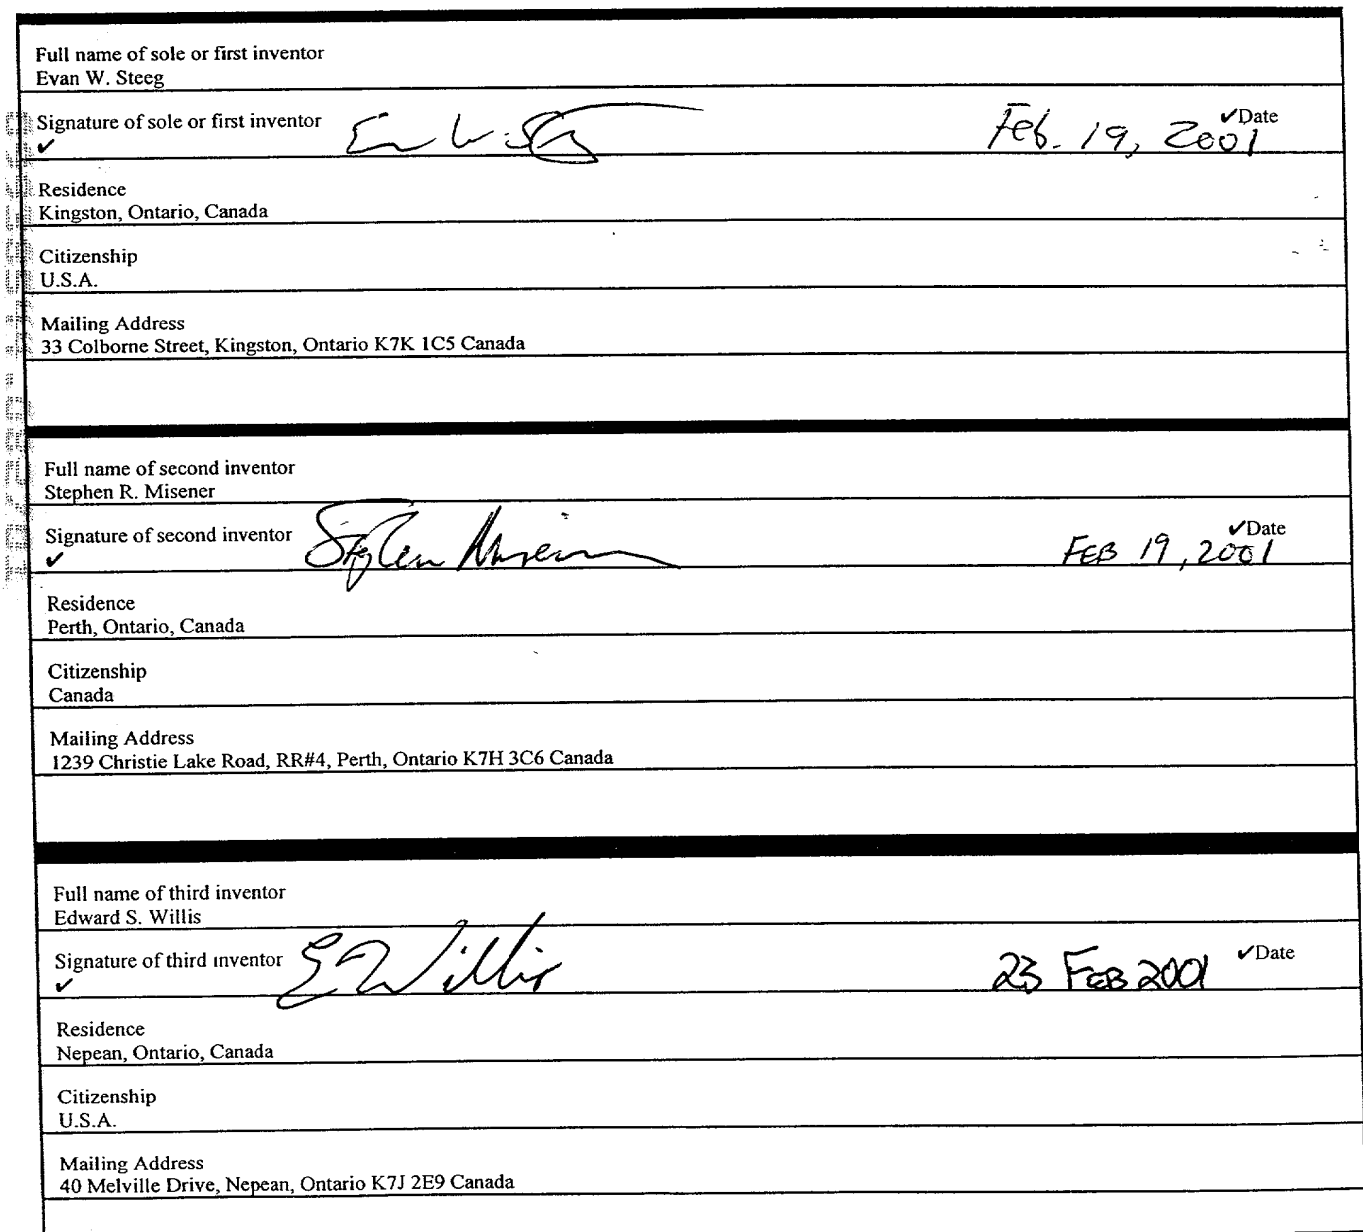 Full name of sole or first inventor
Evan W. Steeg
Signature of sole or first inventor ✔Date
✔ Feb. 19, 2001
Residence
Kingston, Ontario, Canada
Citizenship
U.S.A.
Mailing Address
33 Colborne Street, Kingston, Ontario K7K 1C5 Canada
Full name of second inventor
Stephen R. Misener
Signature of second inventor Stephen Misener ✔Date
✔ FEB 19, 2001
Residence
Perth, Ontario, Canada
Citizenship
Canada
Mailing Address
1239 Christie Lake Road, RR#4, Perth, Ontario K7H 3C6 Canada
Full name of third inventor
Edward S. Willis
Signature of third inventor E Willis 23 FEB 2001 ✔Date
✔
Residence
Nepean, Ontario, Canada
Citizenship
U.S.A.
Mailing Address
40 Melville Drive, Nepean, Ontario K7J 2E9 Canada